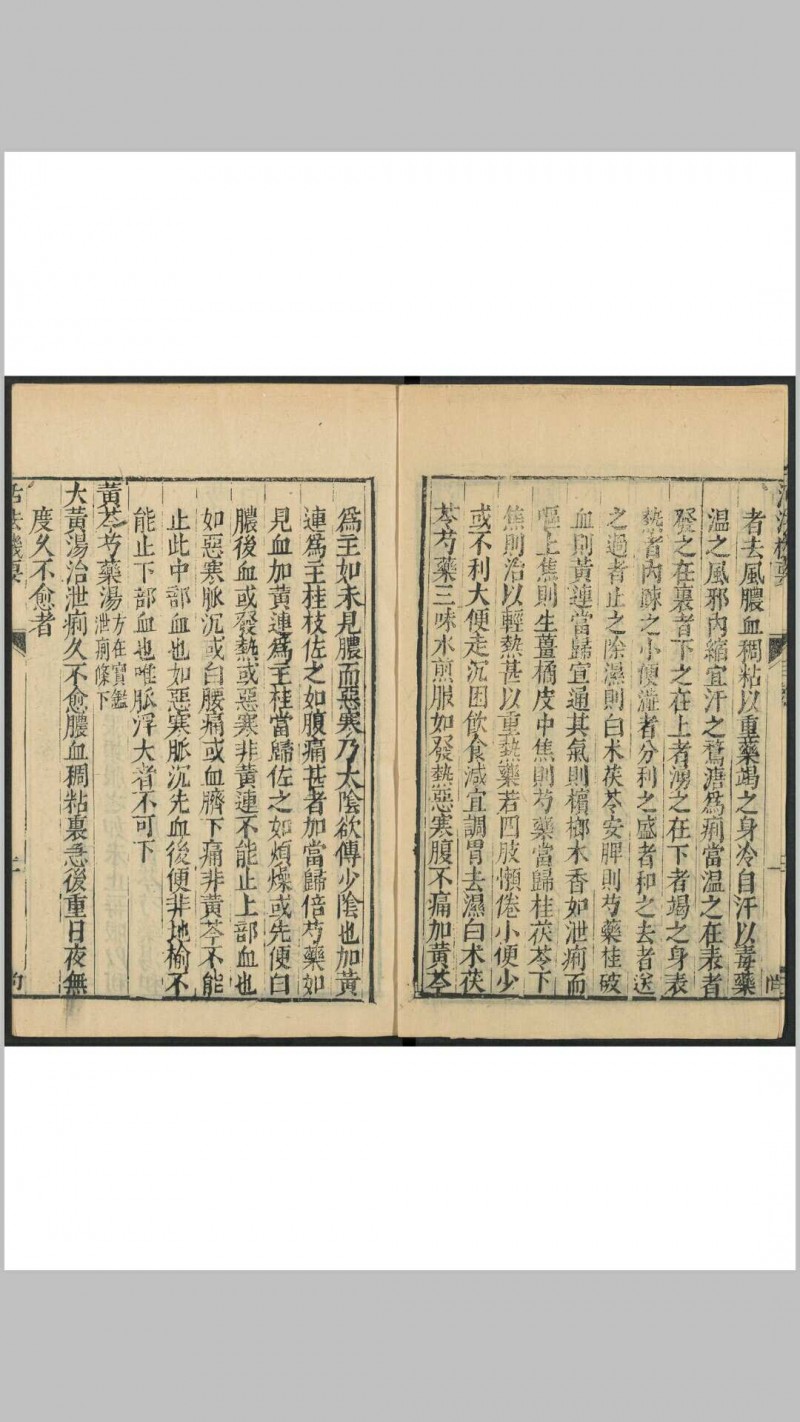 者去風膿血稠粘以重藥竭之身冷自汗以毒藥
温之風邪內縮宜汗之鶩溏為痢當温之在表者
發之在裏者下之在上者湧之在下者竭之身表
熱者內踈之小便澁者分利之盛者和之去者送
之過者止之除濕則白术茯苓安脾則芍藥桂破
血則黄連當歸宜通其氣則檳榔木香如泄痢而
嘔上焦則生薑橘皮中焦則芍藥當歸桂茯苓下
焦則治以輕熱甚以重熱藥若四肢懶倦小便少
或不利大便走沉困飲食減宜調胃去濕白术茯
苓芍藥三味水煎服如發熱惡寒腹不痛加黄芩
為主如未見膿而惡寒乃太陰欲傳少陰也加黄
連為主桂枝佐之如腹痛甚者加當歸倍芍藥如
見血加黄連為主桂當歸佐之如煩燥或先便白
膿後血或發熱或惡寒非黄連不能止上部血也
如惡寒脈沉或白腰痛或血臍下痛非黄芩不能
止此中部血也如惡寒脈沉先血後便非地榆不
能止下部血也唯脈浮大者不可下
黄芩芍藥湯方在寳鑑
泄痢條下
大黄湯治泄痢久不愈膿血稠粘裏急後重日夜無
度久不愈者
活法機要
二